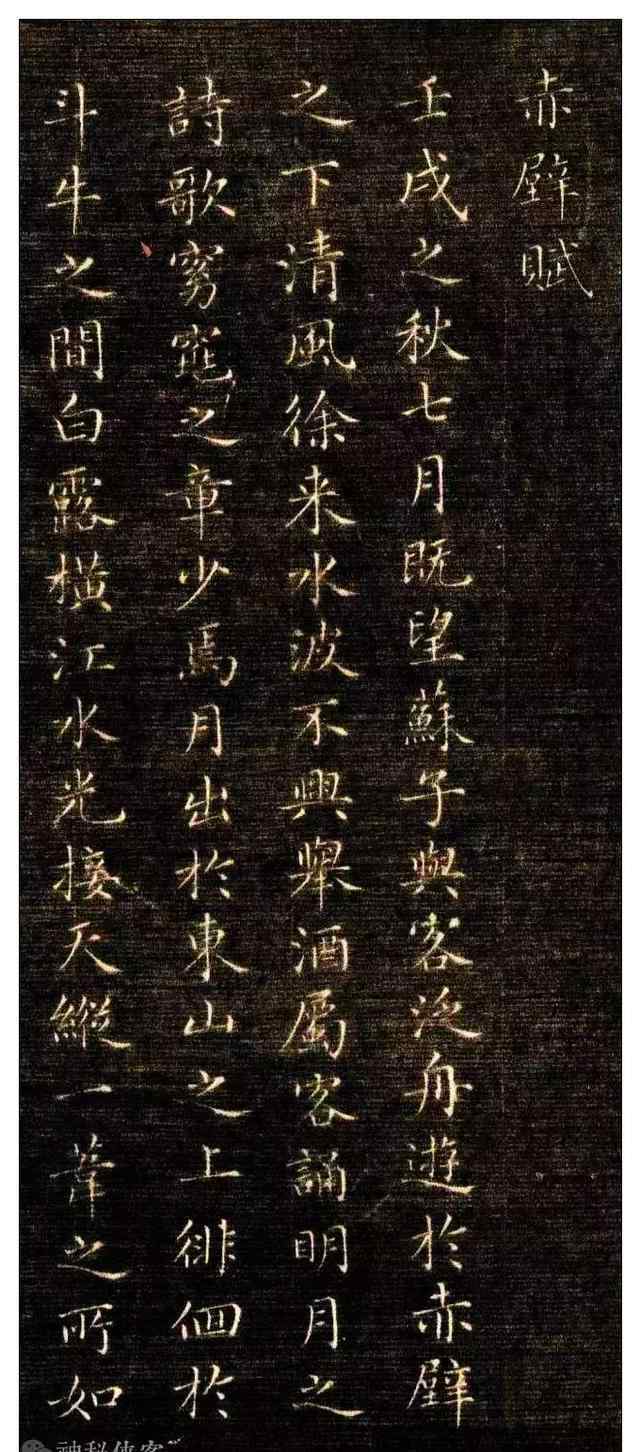 赤壁賦
壬戌之秋七月既望蘇子與客泛舟遊於赤壁
之下清風徐来水波不興舉酒屬客誦明月之
詩歌窈窕之章少焉月出於東山之上徘徊於
斗牛之間白露橫江水光接天縱一葦之所如